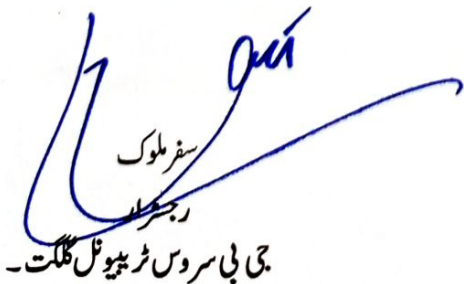 سفر ملوک
رجسٹرار
جی بی سروس ٹریبیونل گلگت۔